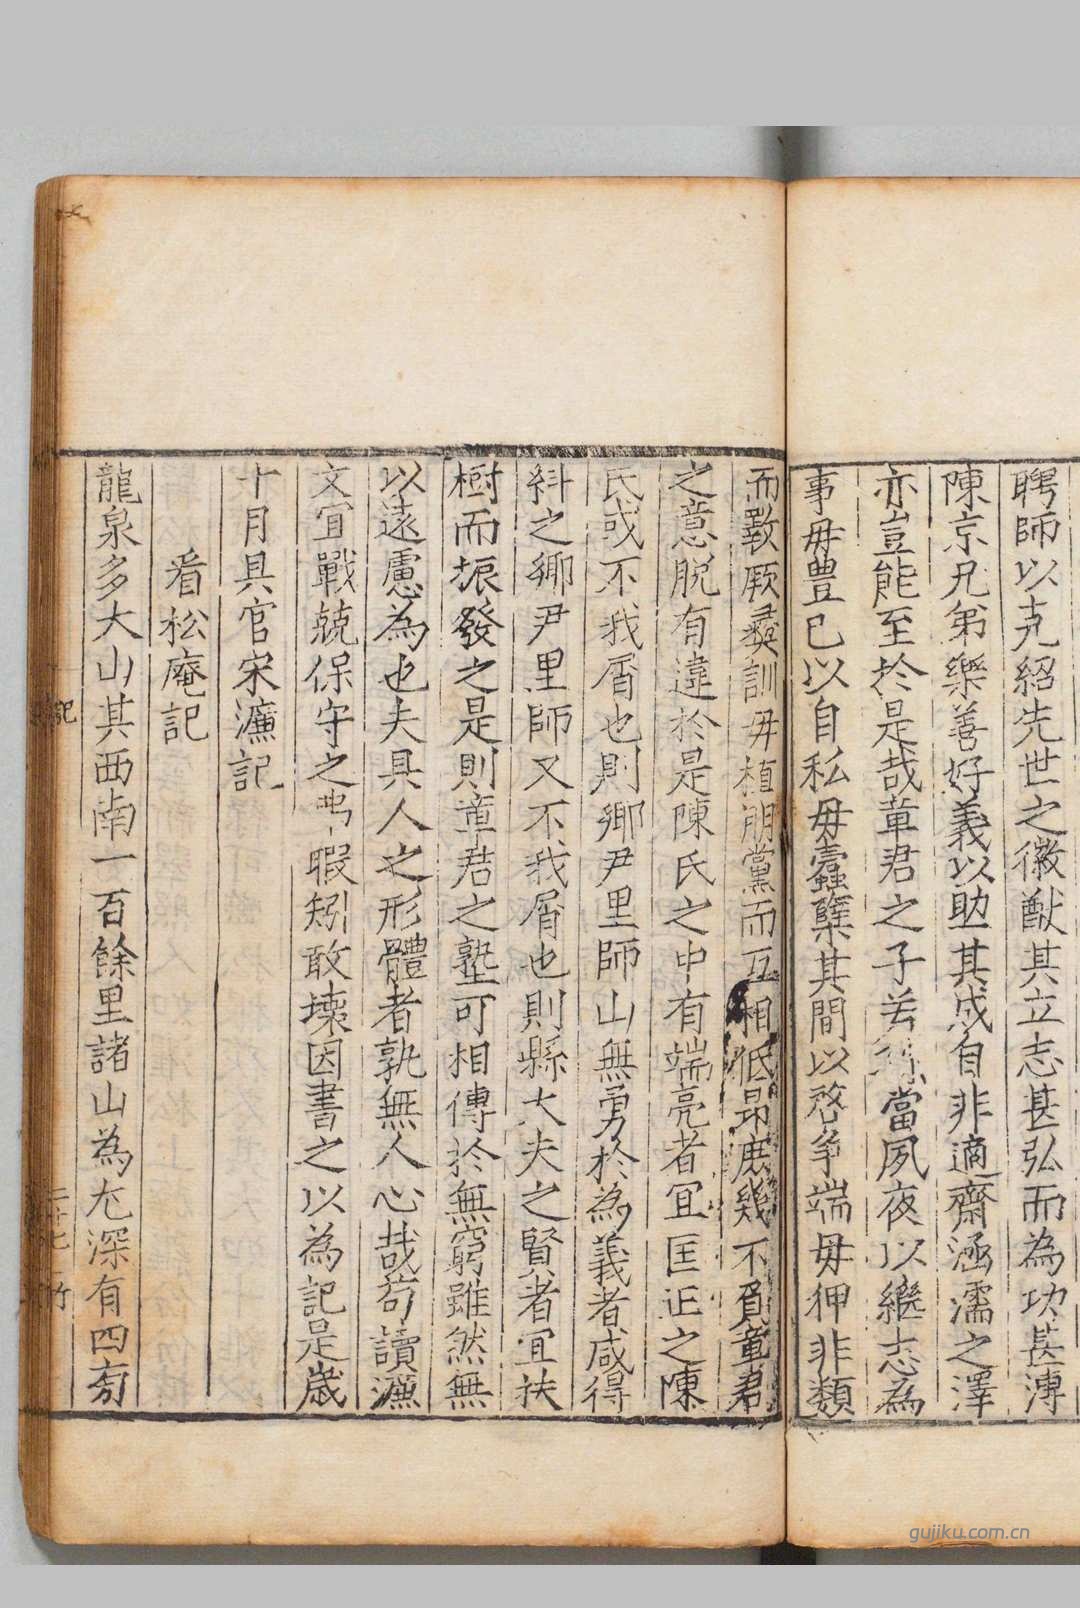 聘師以克紹先世之徽猷其立志甚弘而為功甚溥
陳京兄弟樂善好義以助其成自非適齋涵濡之澤
亦豈能至於是哉章君之子若孫當夙夜以繼志為
事毋豊己以自私毋蠹孽其間以啓争端毋狎非類
而斁厥彞訓毋植朋黨而互相低昻庶幾不負章君
之意脫有違於是陳氏之中有端亮者宜匡正之陳
氏或不我屑也則鄉尹里師山無勇於為義者咸得
糾之鄉尹里師又不我屑也則縣大夫之賢者宜扶
樹而振發之是則章君之塾可相傳於無窮雖然無
以遠慮為也夫具人之形體者孰無人心哉苟讀濂
文宜戰兢保守之暇矧敢壞因書之以為記是歲
十月具官宋濂記
看松庵記
龍泉多大山其西南一百餘里諸山為尤深有四旁
記
二十七
竹
gujiku.com.cn